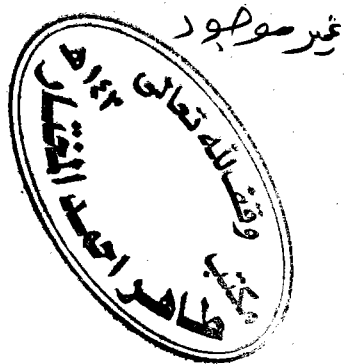 غير موجود
وقف لله تعالى
مكتب
طاهر احمد المختار